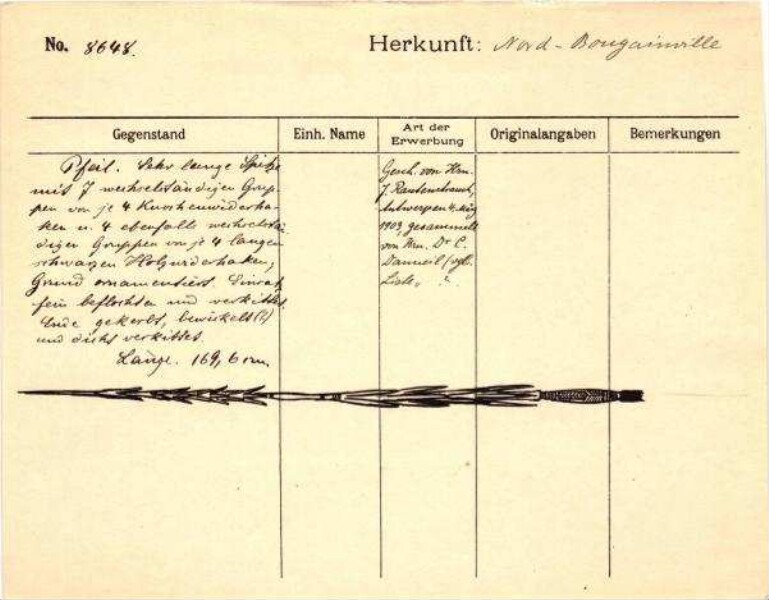 No. 8648.
Herkunft: Nord-Bougainville
Gegenstand
Einh. Name
Art der Erwerbung
Originalangaben
Bemerkungen
Pfeil. Sehr lange Spitze
mit 7 wechselständigen Grup-
pen von je 4 Knochenwiderha-
ken u. 4 ebenfalls wechselstä-
digen Gruppen von je 4 langen
schwarzen Holzwiderhaken,
Grund ornamentiert. Einsatz
fein beflochten und verkittet.
Ende gekerbt, bewickelt(?)
und dicht verkittet.
Länge. 169,6 cm.
Gesch. von Hrn.
J. Rautenstrauch,
Antwerpen 4. März
1903, gesammelt
von Hrn. Dr C.
Danneil (vgl.
Liste